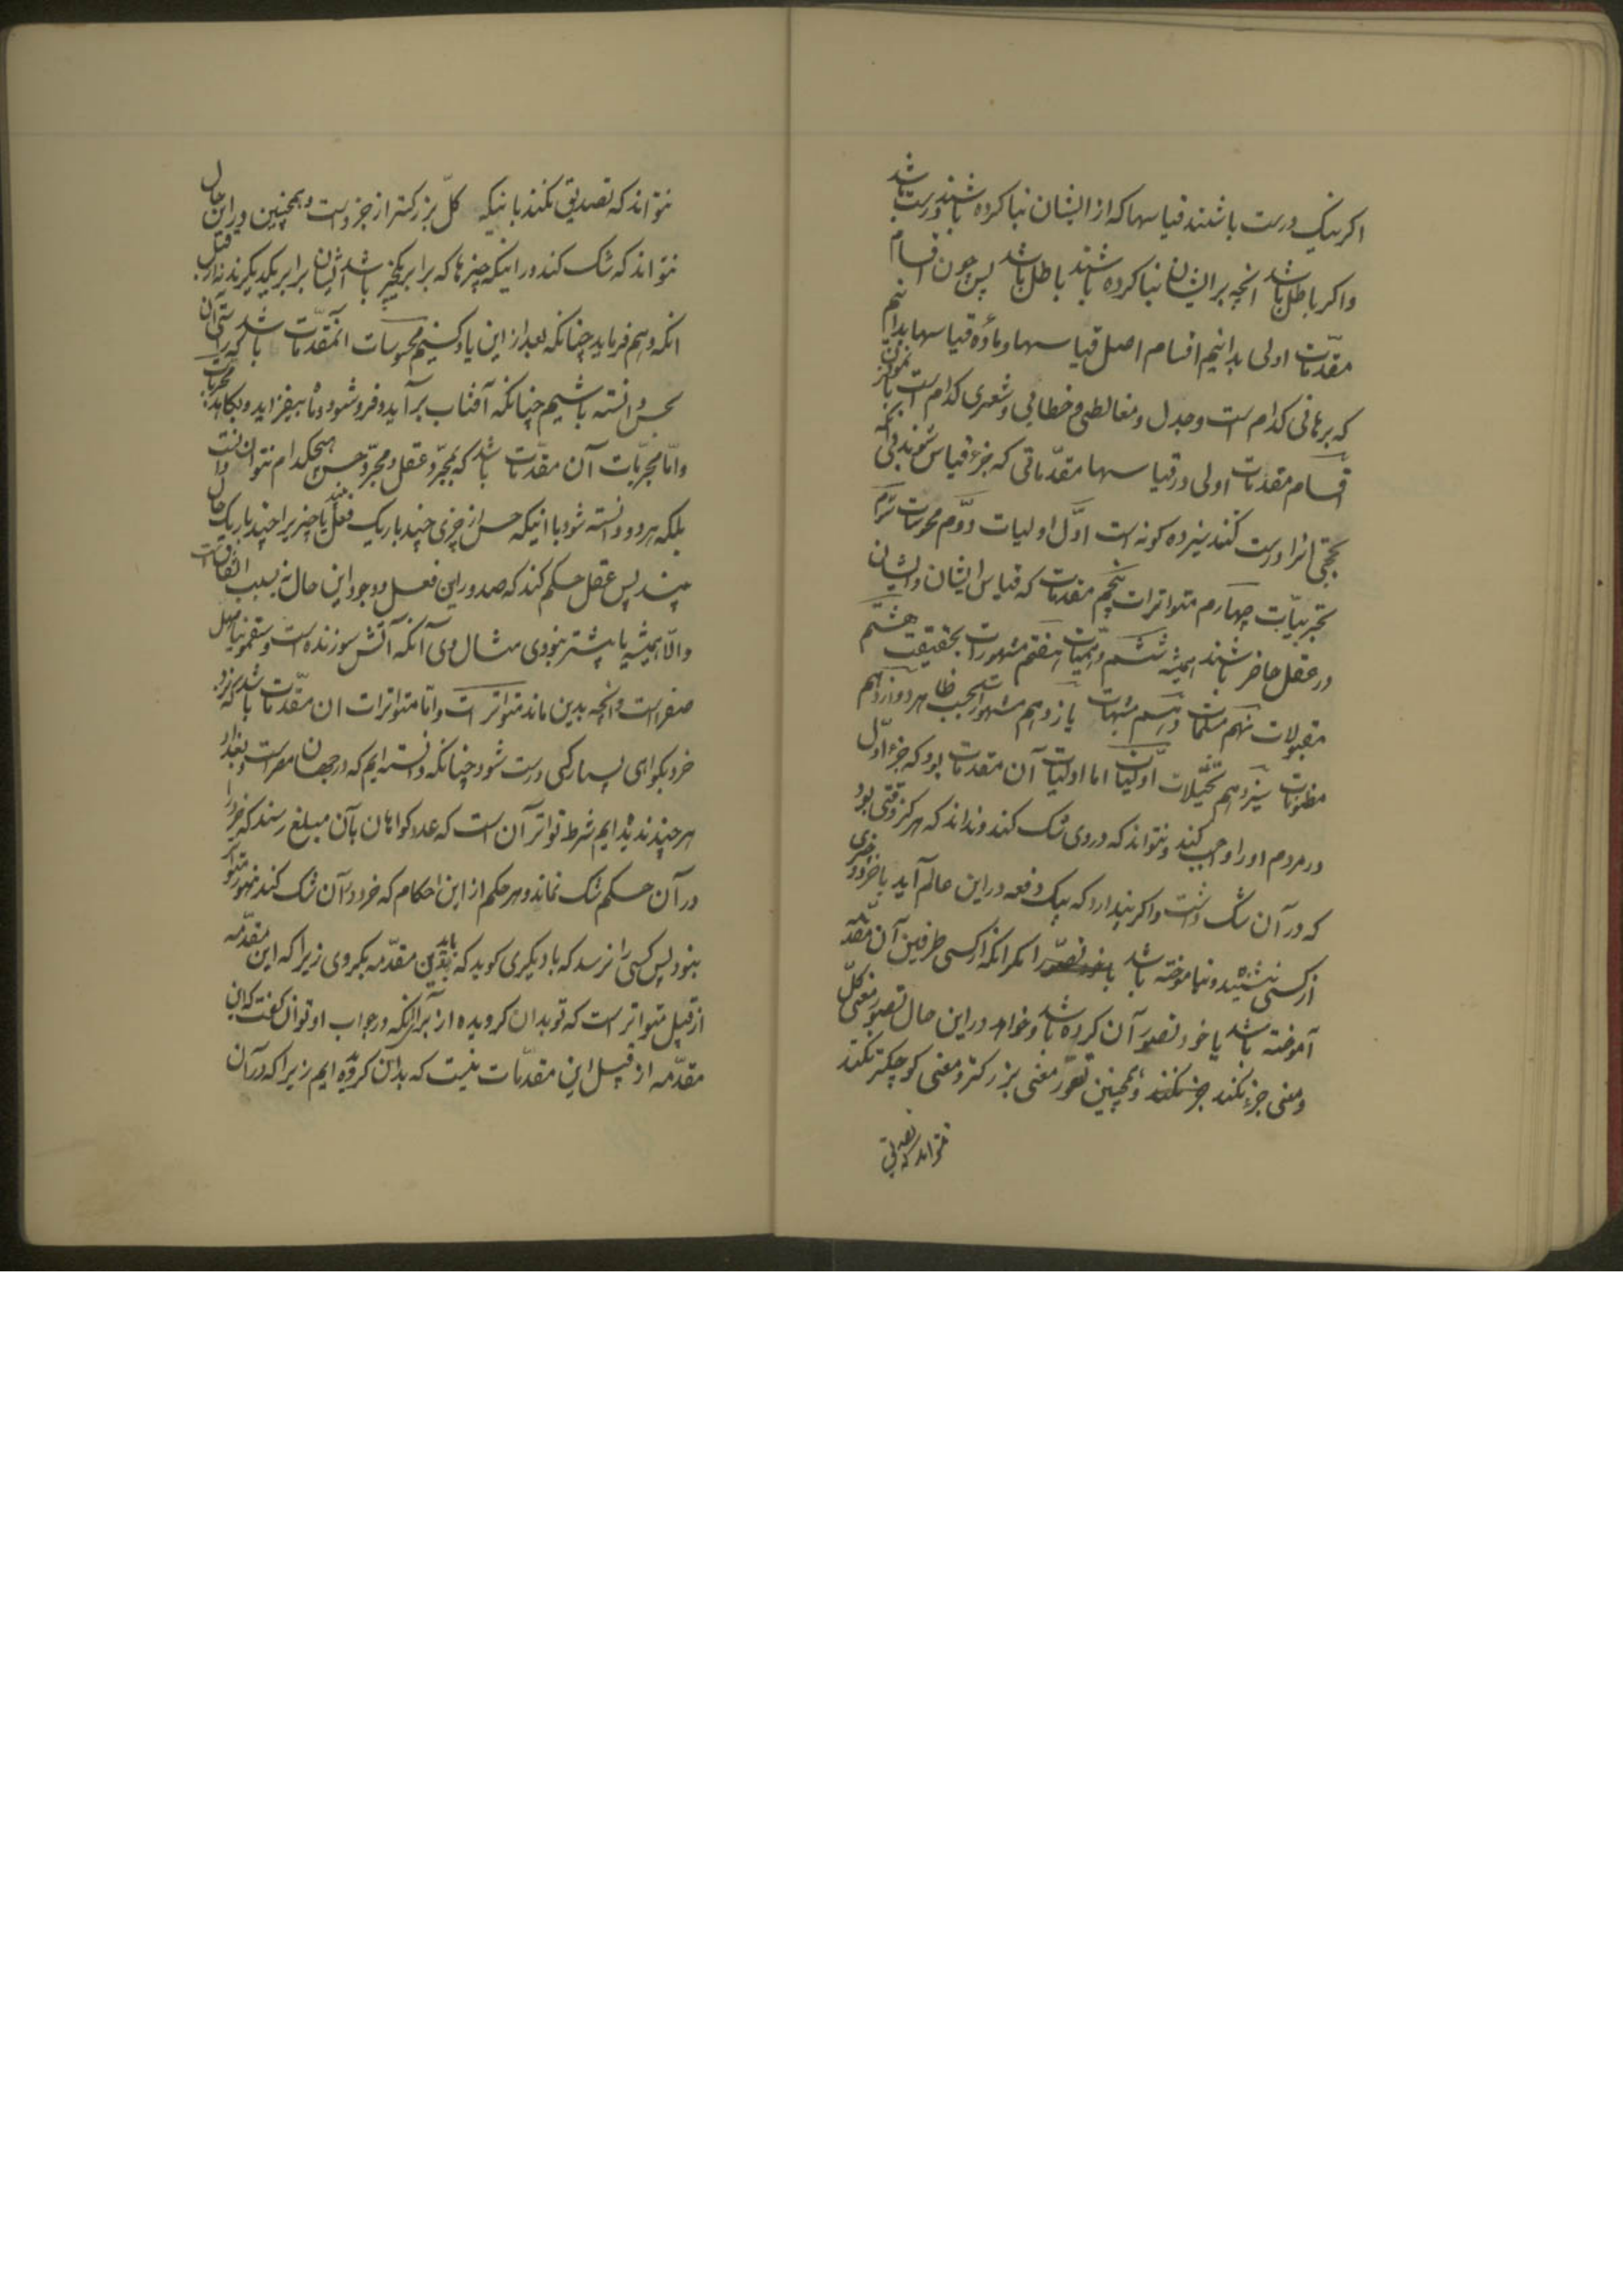 اکر نیک درست باشند قیاسها که از ایشان بنا کرده باشند درست باشد
و اکر باطل باشد انچه بر ایشان بنا کرده باشند باطل باشد پس چون اقسام
مقدّمات اولی بدانیم اقسام اصل قیاسها و ماده قیاسها بدانیم
که برهانی کدام است و جدل و مغالطی و خطابی و شعری کدام است
اقسام مقدمات اولی در قیاسها مقدّماتی که جزء قیاس شوند بی انکه
بحجتی انرا درست کنند سیزده کونه است اوّل اولیات دوّم محسوسات سوم
تجربیّات چهارم متواترات پنجم مقدمات که قیاس ایشان و ایشان
در عقل حاضر باشند همیشه ششم وهمیّات هفتم مشهورات بحقیقت هشتم
مقبولات نهم مسلمات دهم مشبهات یازدهم مشهورات بحسب ظاهر دوازدهم
مظنونات سیزدهم تخیّلات اوّلیّات اما اولیّات آن مقدمات بود که جزء اوّل
در مردم او را واجب کند و نتواند که در وی شک کند و نداند که هرکز وقتی بود
که در آن شک داشت و اکر پندارد که بیک دفعه در این عالم آید با خرد و چیزی
از کسی نشنیده و نیاموخته باشد مکر انکه از کسی طرفین آن مقدّمه
آموخته باشد یا خود تصوّر آن کرده باشد و خواهد در این حال تصوّر معنی کلّ
و معنی جزء نکند جزء نکند و همچنین تصوّر معنی بزرکتر و معنی کوچکتر نکند
نتواند که تصدیق
نتواند که تصدیق نکند بانیکه کلّ بزرکتر از جزء است و همچنین در این حال
نتواند که شک کند در اینکه چیزها که برابر یکچیز باشد ایشان برابر یکدیکرند نه از قبیل
انکه وهم فرماید چنانکه بعد از این یاد کنیم محسوسات انمقدّمات باشد که راستی آن
بحس دانسته باشیم چنانکه آفتاب برآید و فرو شود و ماه بیفزاید و بکاهد مجربات
و امّا مجربّات آن مقدّمات باشد که بمجرّد عقل و مجرّد حس هیچکدام نتوان دانست
بلکه بهر دو دانسته شود با انیکه حس از چیزی چند بار یک فعل بیند یا چیز را چند بار یک حال
بیند پس عقل حکم کند که صدور این فعل و وجود این حال نه بسبب اتفاقست
و الّا همیشه یا بیشتر نبودی مثال وی آنکه آتش سوزنده است و سقمونیا مسهل
صفراست و انچه بدین ماند متواترات و امّا متواترات ان مقدّمات باشد که نزد
خرد بکواهی بسیار کس درست شود چنانکه دانسته ایم که در جهان مصر است و بغداد
هر چند ندیده ایم شرط تواتر آن است که عدد کواهان بآن مبلغ رسند که خرد را
در آن حکم شک نماند و هر حکم از این احکام که خرد در آن شک کند هنوز متواتر
نبود پس کسی را نرسد که با دیکری کوید که باید بدین مقدّمه بکروی زیرا که این مقدّمه
از قبیل متواتر است که تو بدان کرویده از برای انکه در جواب او توان کفت که این
مقدّمه از قبیل این مقدّمات نیست که بدان کرویده ایم زیرا که در آن